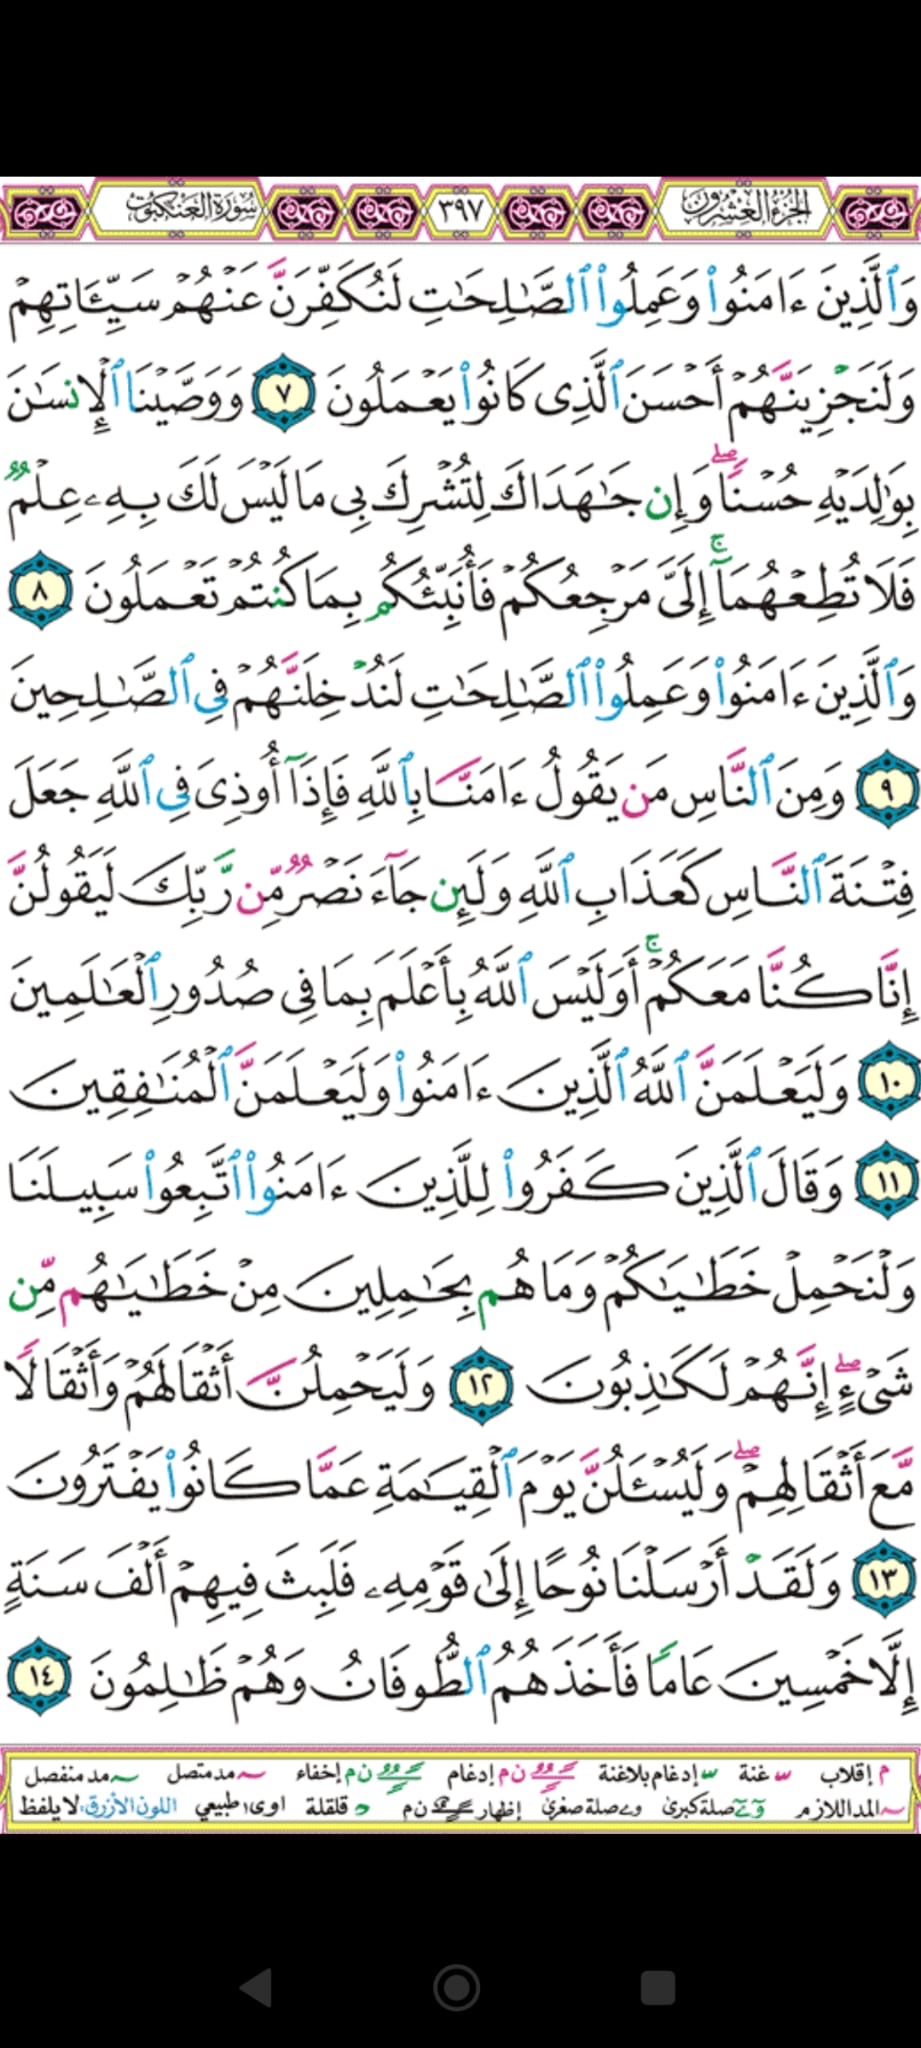 الجزء العشرون ٣٩٧ سورة العنكبوت
وَٱلَّذِينَ ءَامَنُوا۟ وَعَمِلُوا۟ ٱلصَّـٰلِحَـٰتِ لَنُكَفِّرَنَّ عَنْهُمْ سَيِّـَٔاتِهِمْ
وَلَنَجْزِيَنَّهُمْ أَحْسَنَ ٱلَّذِى كَانُوا۟ يَعْمَلُونَ ٧ وَوَصَّيْنَا ٱلْإِنسَـٰنَ
بِوَٰلِدَيْهِ حُسْنًا ۖ وَإِن جَـٰهَدَاكَ لِتُشْرِكَ بِى مَا لَيْسَ لَكَ بِهِۦ عِلْمٌ
فَلَا تُطِعْهُمَآ ۚ إِلَىَّ مَرْجِعُكُمْ فَأُنَبِّئُكُم بِمَا كُنتُمْ تَعْمَلُونَ ٨
وَٱلَّذِينَ ءَامَنُوا۟ وَعَمِلُوا۟ ٱلصَّـٰلِحَـٰتِ لَنُدْخِلَنَّهُمْ فِى ٱلصَّـٰلِحِينَ
٩ وَمِنَ ٱلنَّاسِ مَن يَقُولُ ءَامَنَّا بِٱللَّهِ فَإِذَآ أُوذِىَ فِى ٱللَّهِ جَعَلَ
فِتْنَةَ ٱلنَّاسِ كَعَذَابِ ٱللَّهِ وَلَئِن جَآءَ نَصْرٌ مِّن رَّبِّكَ لَيَقُولُنَّ
إِنَّا كُنَّا مَعَكُمْ ۚ أَوَلَيْسَ ٱللَّهُ بِأَعْلَمَ بِمَا فِى صُدُورِ ٱلْعَـٰلَمِينَ
١٠ وَلَيَعْلَمَنَّ ٱللَّهُ ٱلَّذِينَ ءَامَنُوا۟ وَلَيَعْلَمَنَّ ٱلْمُنَـٰفِقِينَ
١١ وَقَالَ ٱلَّذِينَ كَفَرُوا۟ لِلَّذِينَ ءَامَنُوا۟ ٱتَّبِعُوا۟ سَبِيلَنَا
وَلْنَحْمِلْ خَطَـٰيَـٰكُمْ وَمَا هُم بِحَـٰمِلِينَ مِنْ خَطَـٰيَـٰهُم مِّن
شَىْءٍ ۖ إِنَّهُمْ لَكَـٰذِبُونَ ١٢ وَلَيَحْمِلُنَّ أَثْقَالَهُمْ وَأَثْقَالًا
مَّعَ أَثْقَالِهِمْ ۖ وَلَيُسْـَٔلُنَّ يَوْمَ ٱلْقِيَـٰمَةِ عَمَّا كَانُوا۟ يَفْتَرُونَ
١٣ وَلَقَدْ أَرْسَلْنَا نُوحًا إِلَىٰ قَوْمِهِۦ فَلَبِثَ فِيهِمْ أَلْفَ سَنَةٍ
إِلَّا خَمْسِينَ عَامًا فَأَخَذَهُمُ ٱلطُّوفَانُ وَهُمْ ظَـٰلِمُونَ ١٤
م إقلاب غنة إدغام بلاغنة ن م إدغام ن م إخفاء مد متصل مد منفصل
المد اللازم صلة كبرى و ے صلة صغرى إظهار ن م قلقلة اوى طبيعي اللون الأزرق: لا يلفظ